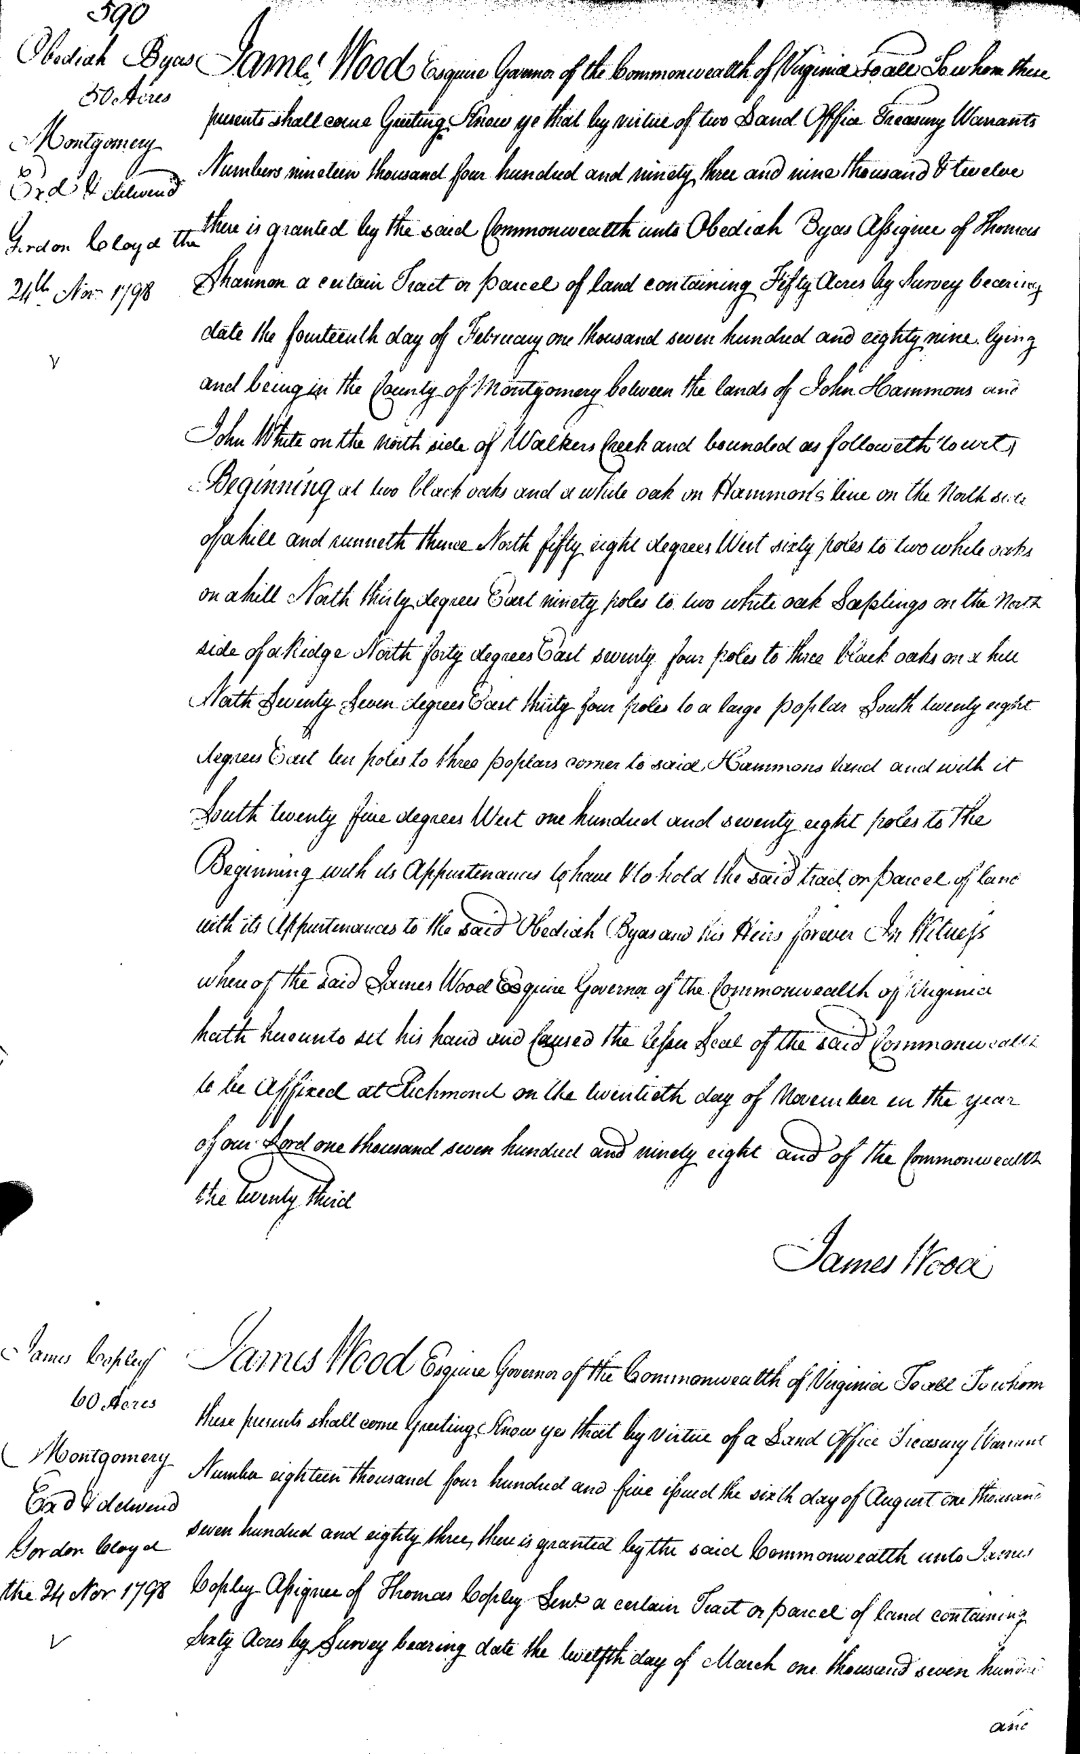 590
Obediah Byas
50 Acres
Montgomery
Exd & delivered
Gordon Cloyd the
24th Nov 1798
James Wood Esquire Governor of the Commonwealth of Virginia To all To whom these
presents shall come Greeting Know ye that by virtue of two Land Office Treasury Warrants
Numbers nineteen thousand four hundred and ninety three and nine thousand & twelve
there is granted by the said Commonwealth unto Obediah Byas Assignee of Thomas
Shannon a certain Tract or parcel of land containing Fifty Acres by Survey bearing
date the fourteenth day of February one thousand seven hundred and eighty nine lying
and being in the County of Montgomery between the lands of John Hammons and
John White on the north side of Walkers Creek and bounded as followeth to wit,
Beginning at two black oaks and a white oak on Hammons's line on the North side
of a hill and runneth thence North fifty eight degrees West sixty poles to two white oaks
on a hill North thirty degrees East ninety poles to two white oak Saplings on the North
side of a Ridge North forty degrees East seventy four poles to three black oaks on a hill
North Seventy Seven degrees East thirty four poles to a large poplar South twenty eight
degrees East ten poles to three poplars corner to said Hammons land and with it
South twenty five degrees West one hundred and seventy eight poles to the
Beginning with its Appurtenances to have & to hold the said tract or parcel of land
with its Appurtenances to the said Obediah Byas and his Heirs forever In Witness
whereof the said James Wood Esquire Governor of the Commonwealth of Virginia
hath hereunto set his hand and Caused the lesser Seal of the said Commonwealth
to be Affixed at Richmond on the twentieth day of November in the year
of our Lord one thousand seven hundred and ninety eight and of the Commonwealth
the twenty third
James Wood
James Copley
60 Acres
Montgomery
Exd & delivered
Gordon Cloyd
the 24 Nov 1798
James Wood Esquire Governor of the Commonwealth of Virginia To all To whom
these presents shall come Greeting Know ye that by virtue of a Land Office Treasury Warrant
Number eighteen thousand four hundred and five issued the sixth day of August one thousand
seven hundred and eighty three, there is granted by the said Commonwealth unto James
Copley Assignee of Thomas Copley Senr a certain Tract or parcel of land containing
Sixty Acres by Survey bearing date the twelfth day of March one thousand seven hundred
and